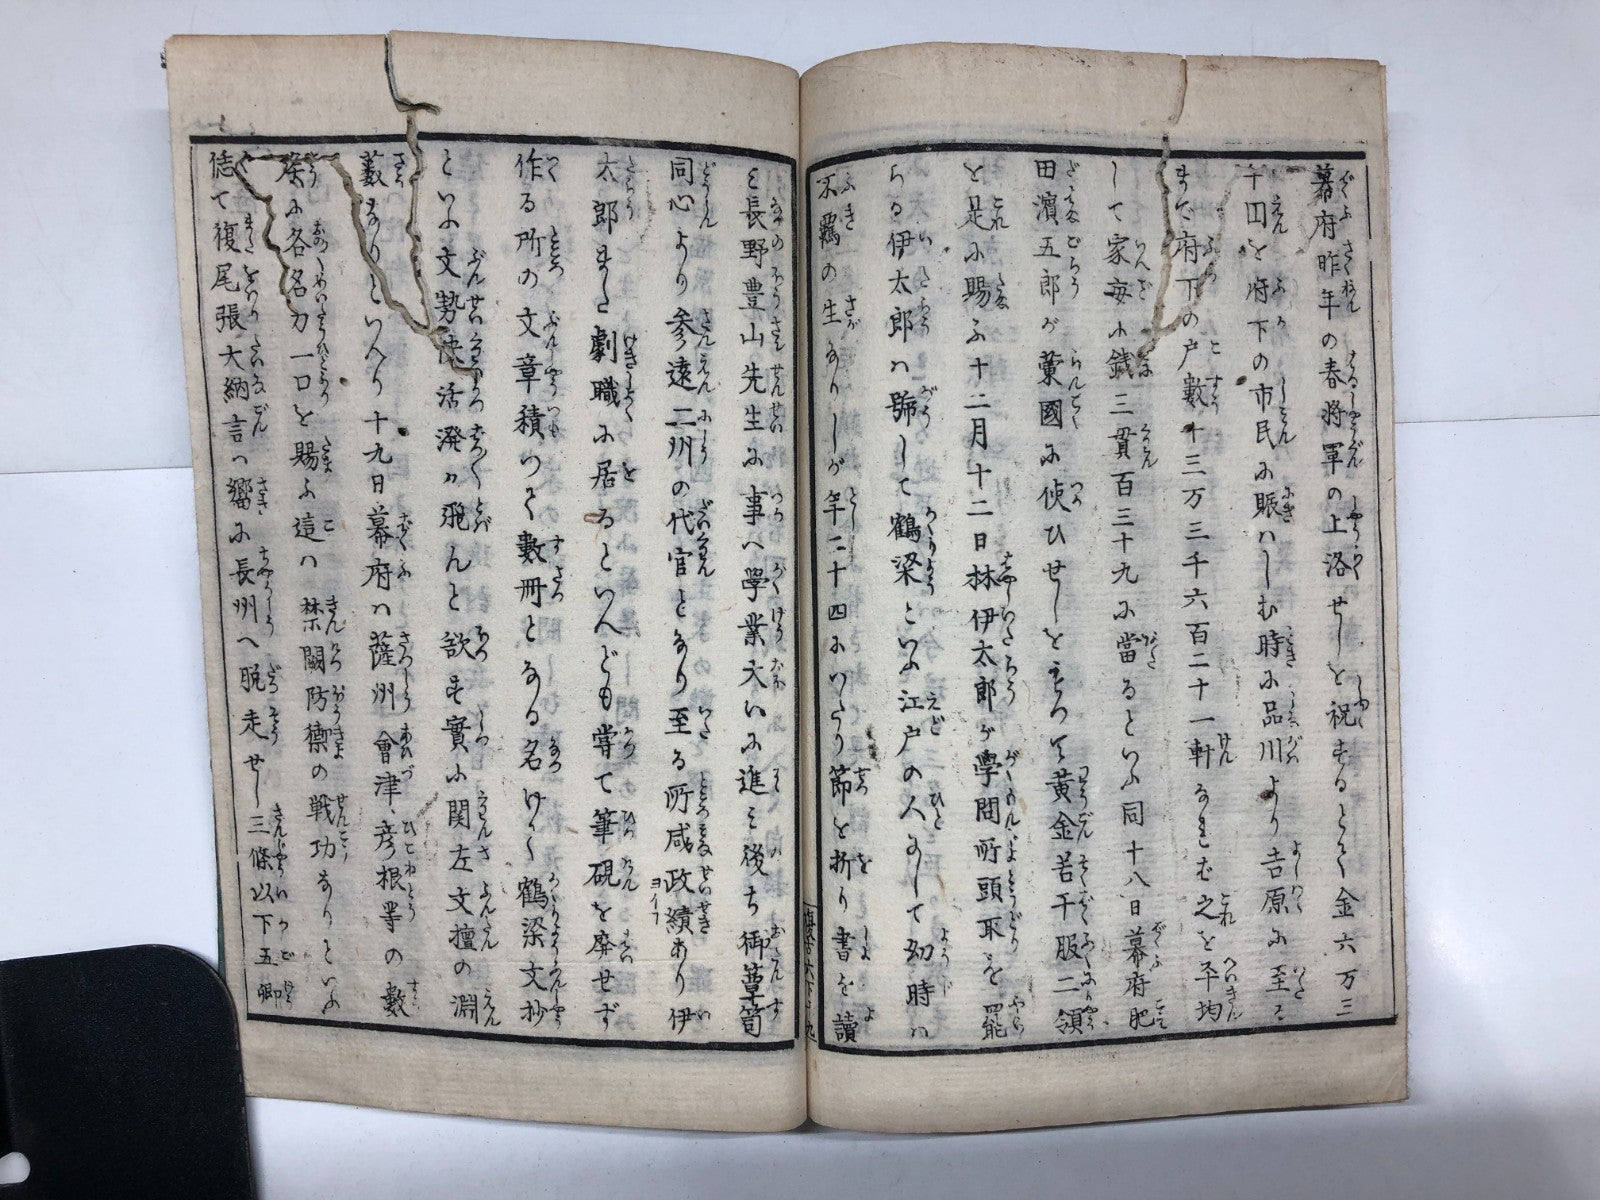 幕府昨年の春將軍の上洛せしを祝するとて金六万三
千両を府下の市民に賑はしむ時に品川より吉原に至る
まで府下の戸數十三万三千六百二十一軒なりむ之を平均
して家毎に錢三貫百三十九に當るといふ同十八日幕府肥
田濱五郎が蘭國に使ひせしを
て黄金若干服二領
を是に賜ふ十二月十二日林伊太郎が學問所頭取を罷
らる伊太郎は號して鶴梁といふ江戸の人にして幼時は
不羈の生なりしが年二十四にいたり節を折り書を讀
み長野豊山先生に事へ學業大いに進み後ち御簞笥
同心より参遠二州の代官となり至る所咸政績あり伊
太郎また劇職に居るといへども嘗て筆硯を廃せず
作る所の文章積つて數冊となる名けて鶴梁文抄
といふ文勢快活溌が飛んと欲す實に関左文壇の淵
藪なりといへり十九日幕府は薩州會津彦根等の數
藩に各名刀一口を賜ふ這は禁闕防禦の戦功なりといふ
偖て復尾張大納言は嚮に長州へ脱走せし三條以下五卿